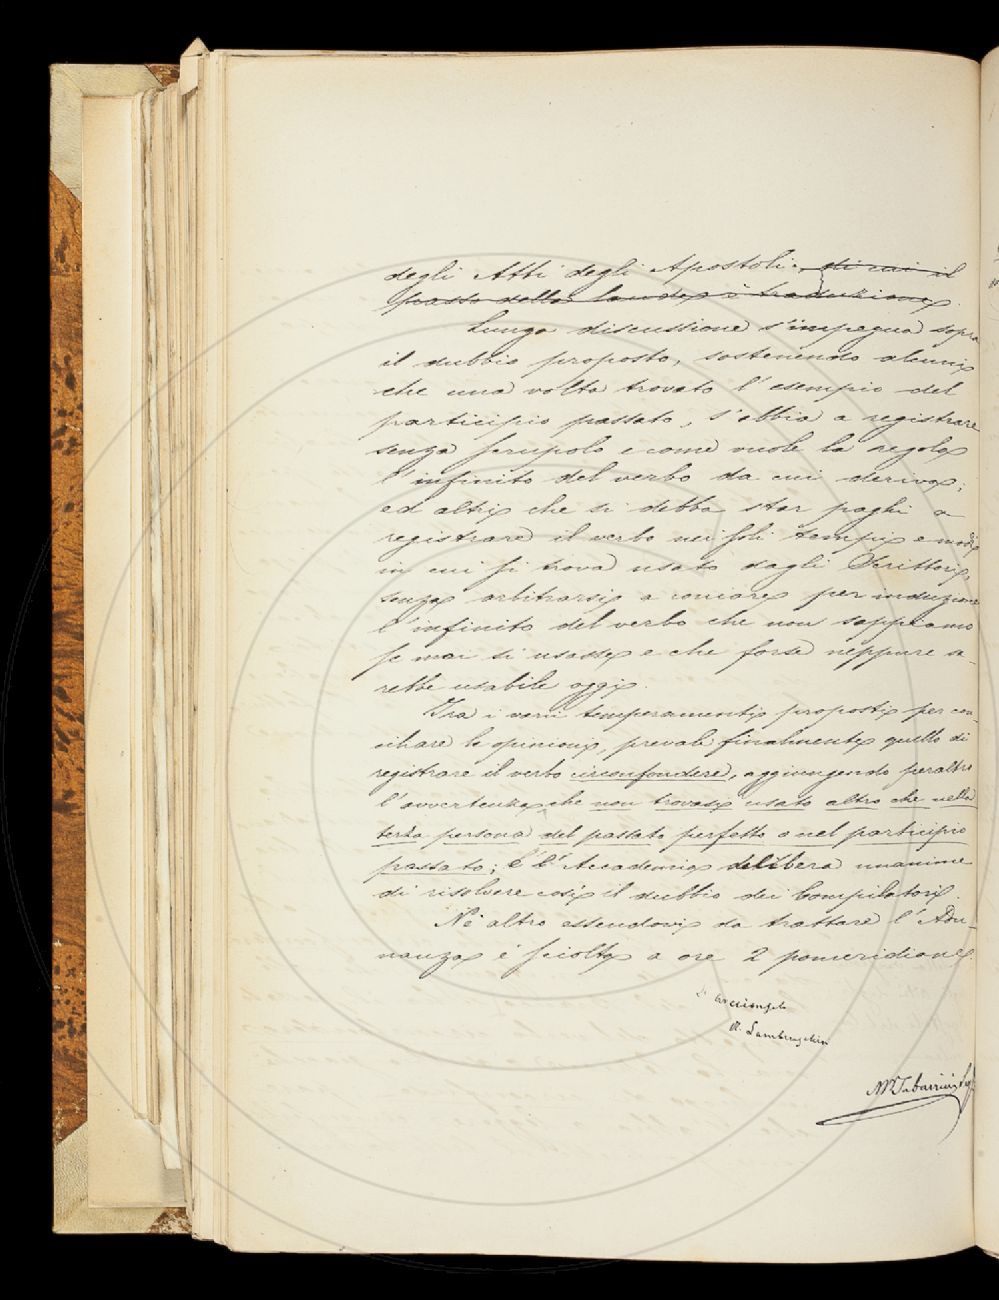 degli Atti degli Apostoli, di cui il
passo della laude è traduzione.
Lunga discussione s'impegna sopra
il dubbio proposto, sostenendo alcuni
che una volta trovato l'esempio del
participio passato, s'abbia a registrare
senza scrupolo e come vuole la regola
l'infinito del verbo da cui deriva;
ed altri che si debba star paghi a
registrare il verbo nei soli tempi e modi
in cui si trova usato dagli Scrittori,
senza arbitrarsi a coniare per induzione
l'infinito del verbo che non sappiamo
se mai si usasse e che forse neppure sa-
rebbe usabile oggi.
Tra i varii temperamenti proposti per con-
ciliare le opinioni, prevale finalmente quello di
registrare il verbo circonfondere, aggiungendo peraltro
l'avvertenza che non trovasi usato altro che nella
terza persona del passato perfetto o nel participio
passato; E l'Accademia delibera unanime
di risolvere così il dubbio dei Compilatori.
Nè altro essendovi da trattare l'Adu-
nanza è sciolta a ore 2 pomeridiane.
L'Arciconsolo
R. Lambruschini
M. Tabarrini Seg.